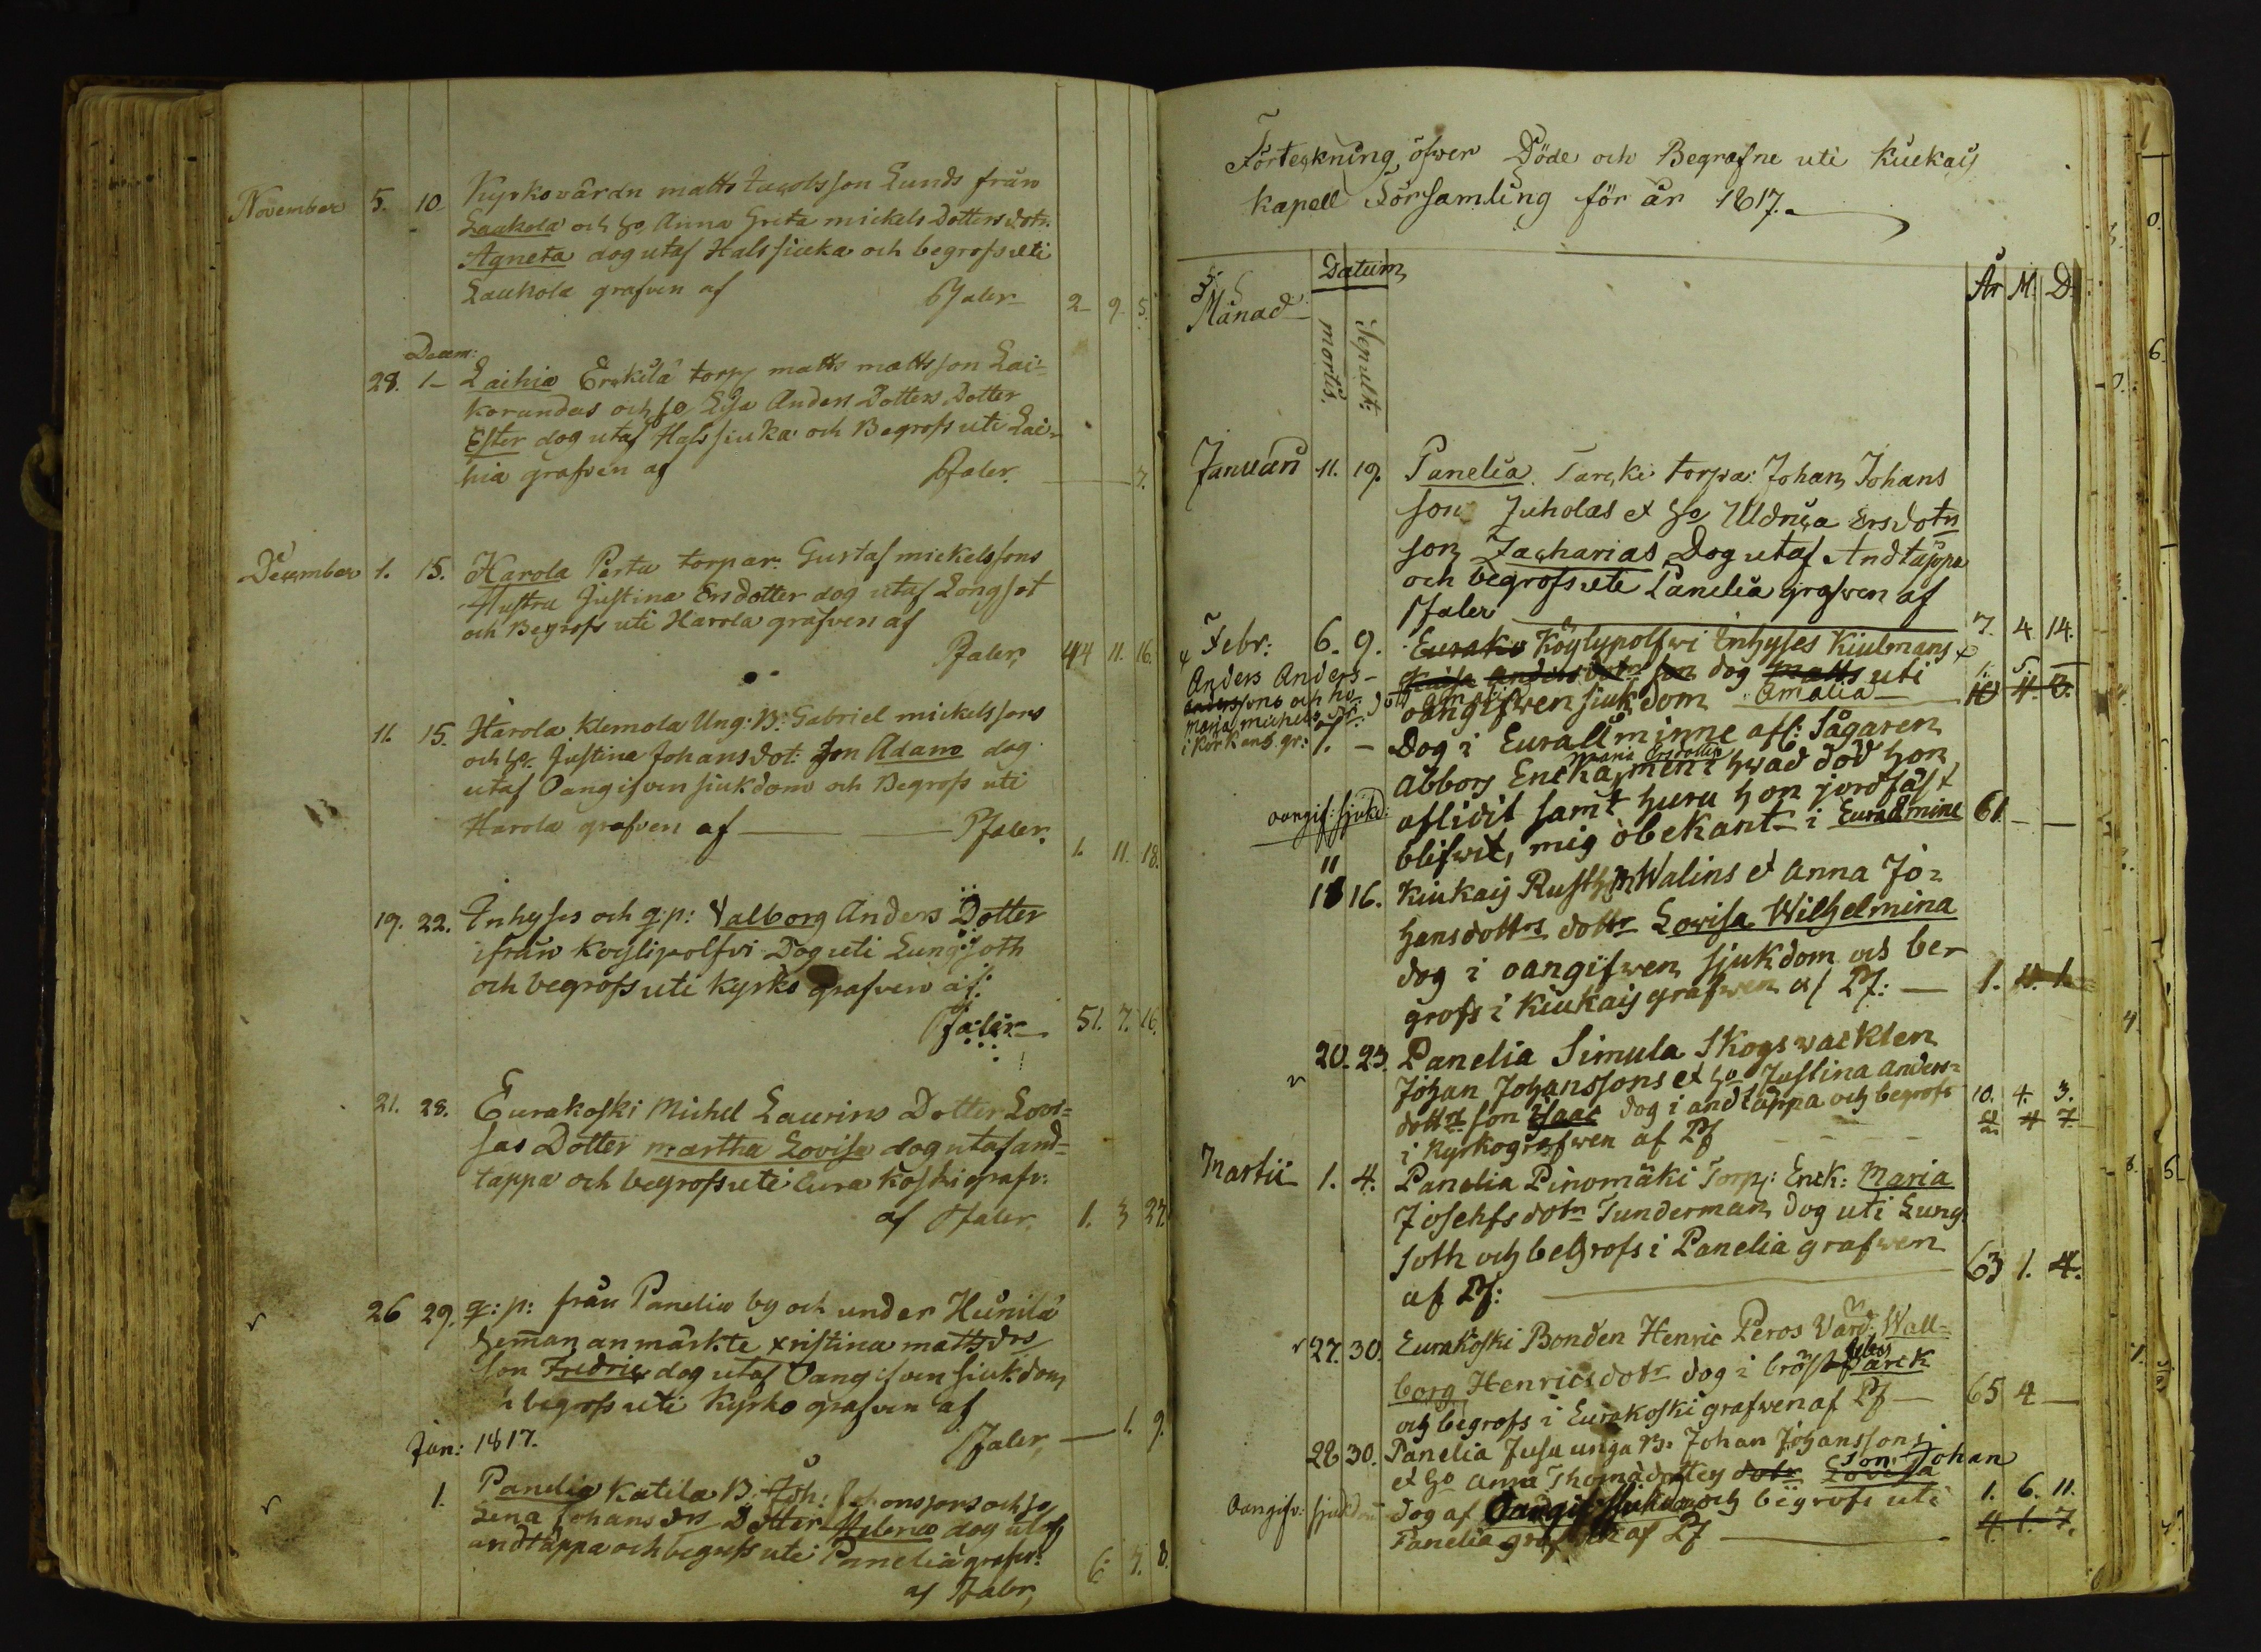 November 5. 10 Kyrkovärdn matts Jacobsson Lunds från
Laukola och ho Anna Greta mickels Dotters dotr.
Agneta dog utaf Halssiuka och begrofs uti
Laukola grafven af Pfaler 2 9 5.
Decem:
28. 1 Laihia Erckilä torp matts mattsson Lai=
korundas och ho Lisa Anders Dotters Dotter
Ester dog utaf Halssiuka och Begrofs uti Lai-
hia grafven af Pfaler. 7.
December 1. 15. Harola Perta torpar: Gustaf mickelssons
Hustru Justina Ersdotter dog utaf Longsot
och Begrofs uti Harola grafven af
Pfaler, 44 11. 16.
11. 15. Harola Klemola Ung: B: Gabriel mickelssons
och ho Justina Johansdot: son Adam dog
utaf Oangifven siukdom och Begrofs uti
Harola grafven af Pfaler. 1. 11. 18.
19. 22. Inhyses och q:p: Valborg Anders Dotter
ifrån Köylipolfvi Dog uti Lungsoth
och begrofs uti kyrko grafven af
Pfaler 51. 7. 16.
21. 28. Eurakoski Michel Laurins Dotter Lovi=
sas Dotter martha Lovisa dog utaf and=
tappa och begrofs uti Eura koski grafv:
af Pfaler. 1. 3 27
26 29. q:p: från Panelia by och under Hunilä
heman anmärkte xristina matts drs
son Fredric dog utaf Oangifven siukdom
begrofs uti Kyrko grafven af
Jan: 1817. Pfaler, 1. 9.
1. Panelia Katila B. Joh: Johanssons och ho
Lena Johans drs Dotter Helena dog utaf
andtäppa och begrofs uti Panelia grafv:
af Pfaler, 6. 3. 8.
Förteckning öfwer Döde och Begrafne uti Kiukais
kapell Församling för år 1817.
Månad Datum År M. D.
mortis. Sepult:
Januari 11. 19. Panelia Tarcki torpa: Johan Johans
son Juholas et ho Uldrica Ersdotrs
son Zacharias Dog utaf Andtäppa
och begrofs uti Panelia grafven af
Pfaler 7. 4. 14.
Febr: 6. 9. Eurako Köylypolfwi Inhyses Kiulmans
Anders Anders- Anders dotr son dog matts uti 1. 5. –
Anderssons och ho oangifwen siukdom Amalia 10 4.
Maria michels dr: dotr Amalia
i kyrkans gr:
1. – Dog i Euraåminne afl: Sågaren
Abbors Encka, Maria Ersdotter hwad död hon
oangif: sjukd: aflidit samt huru hon jordfäst
blifwit, mig obekant i Euraåmine 61 – –
11
18 16. Kiukais Rusth: Walins et Anna Jo=
hansdottrs dottr Lovisa Wilhelmina
dog i oangifwen sjukdom och be-
grofs i Kiukais grafwen af Pf: – 1. 11. 1.
20. 23. Panelia Simula Skogswackten
Johan Johanssons et ho Justina Anders=
dottrs son Isaac dog i andtäppa och begrofs 10. 4. 3.
i Kyrkografwen af Pf 4 7
Martii 1. 4. Panelia Pinomäki Torp: Enck: Maria
Josephsdotr Tunderman dog uti Lung
soth och begrofs i Panelia grafwen
af Pf: 63 1. 4.
27. 30. Eurakoski Bonden Henric Peros Värd: Wall=
borg Henricsdotr dog i bröst feber wärck
och begrofs i Eurakoski grafwen af Pf – 65 4 –
28 30. Panelia Jusu unga B. Johan Johanssons
et ho Anna Thomädotters dotr Lovisa son: Johan
Oangifv: sjukdom dog af Oangif: siukdom och begrofs uti 1. 6. 11.
Panelia grafwen af Pf 4. 1. 7.